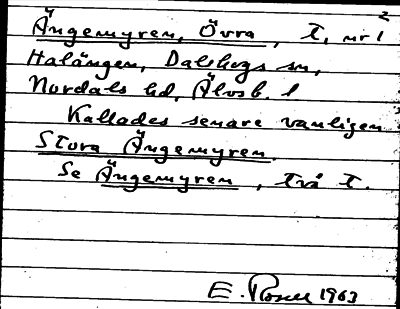 Ängemyren, Övra, t, nr 1 2
Halängen, Dalskogs sn,
Nordals hd, Älvsb. l
Kallades senare vanligen
Stora Ängemyren.
Se Ängemyren, två t.
E. Rosell 1963